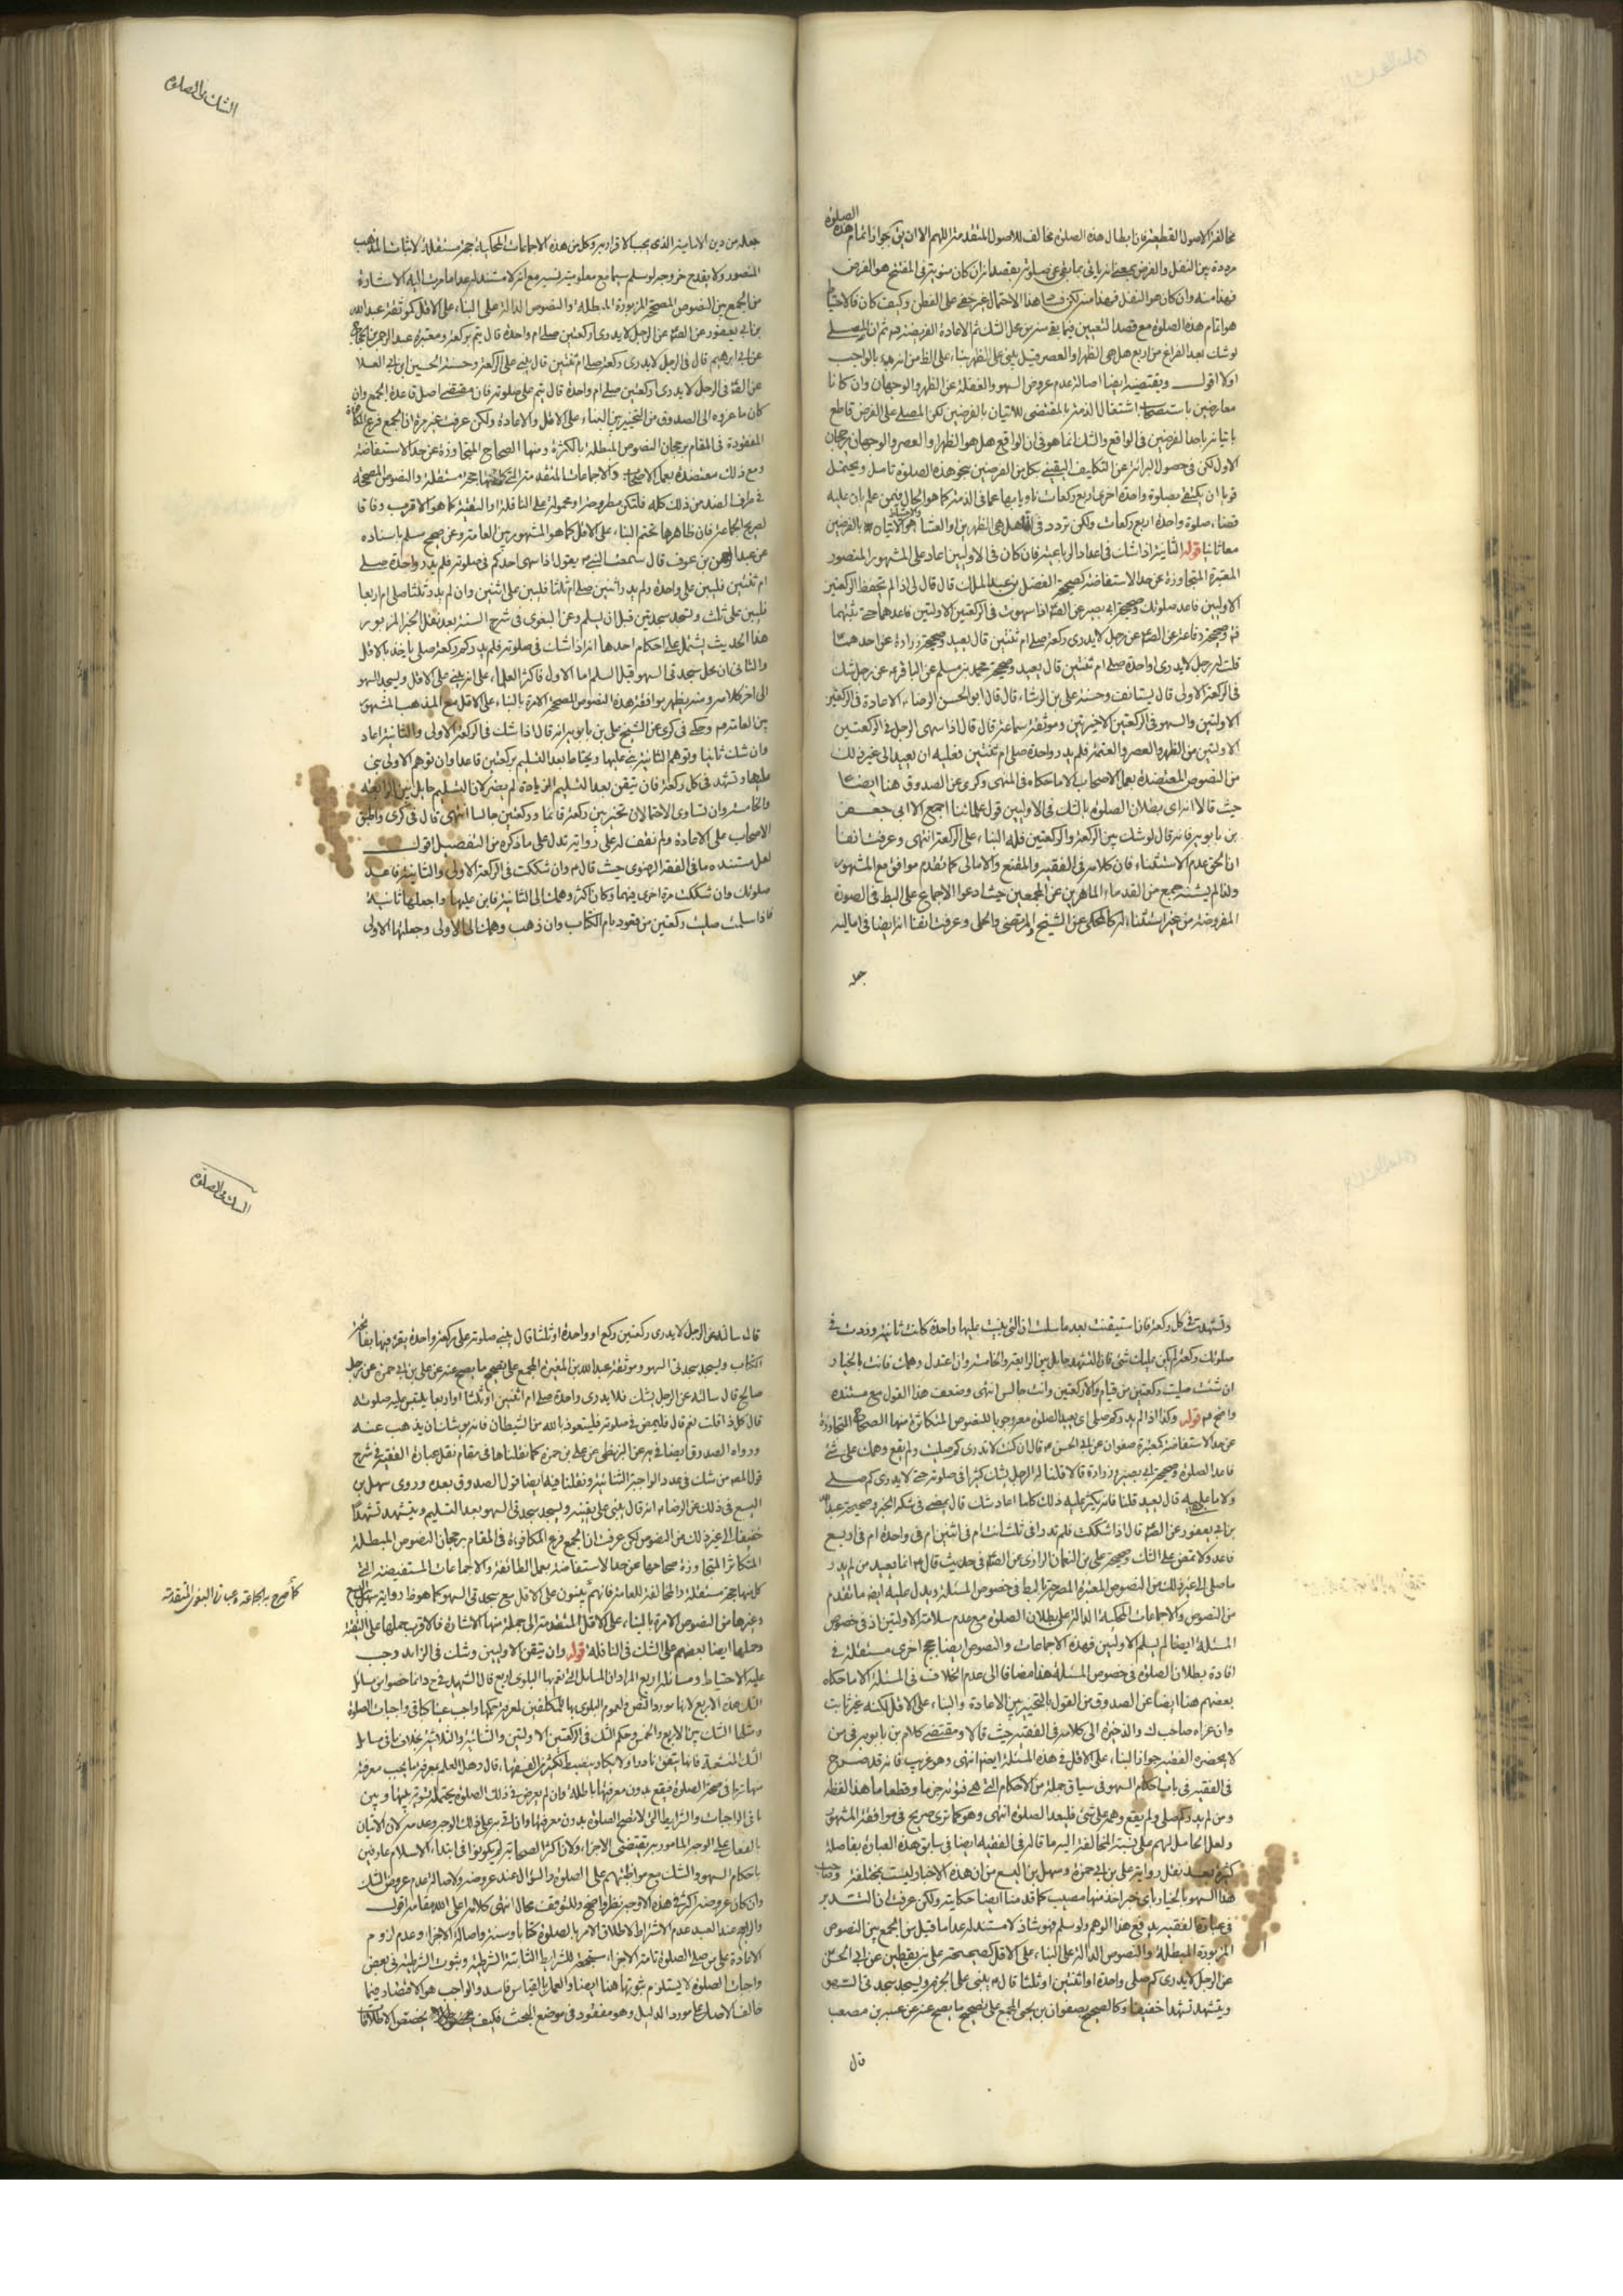 الصلوة
مخالفة الاصول القطعية فان ابطال هذه الصلوة مخالف للاصول المتقدمة اللهم الا ان يق بجواز اتمام هذه
مرددة بين النفل والفرض بمعنى انه ياتى بما بقى من صلوته بقصد انه ان كان منويه فى المفتتح هو الفرض
فهذا منه وان كان هو النفل فهذا منه لكن هذا الاحتمال غير خفى على الفطن وكيف كان فالاحتياط
هو اتمام هذه الصلوة مع قصد التعيين فيما بقى منه من محل الشك ثم الاعادة الفريضة ثم ان المصلى
لو شك بعد الفراغ من اربع هل هى الظهر او العصر قيل يبنى على الظهر بناء على الظ من انه بدء بالواجب
اولا اقول ويقتضيه ايضا اصالة عدم عروض السهو والغفلة عن الظهر والوجهان وان كانا
معارضين باستصحاب اشتغال الذمة بالمقتضى للاتيان بالفرضين لكن المصلى على الفرض قاطع
باتيانه باحد الفرضين فى الواقع والشك انما هو فى ان الواقع هل هو الظهر او العصر والوجهان يرجحان
الاول لكن فى حصول البرائة عن التكليف اليقينى بكل من الفرضين بنحو هذه الصلوة تامل ويحتمل
قويا ان يكتفى بصلوة واحدة اخرى اربع ركعات ناويا بها عما فى الذمة كما هو الحال فيمن علم بان عليه
قضاء صلوة واحدة اربع ركعات ولكن تردد فى انها هل هى الظهرين او العشا والاحتياط هو الاتيان بالفرضين
معا ثانيا قوله الثانية اذا شك فى اعداد الرباعية فان كان فى الاوليين اعاد على المشهور المنصور
المعتبرة المتجاوزة عن حد الاستفاضة كصحيحة الفضل بن عبد الملك قال قال لى اذا لم تحفظ الركعتين
الاوليين فاعد صلوتك وصحيحة ابى بصير عن الصم اذا سهوت فى الركعتين الاولتين فاعدهما حتى تثبتهما
وصحيحة رفاعة عن الصم عن رجل لا يدرى ركعة صلى ام ثنتين قال يعيد وصحيحة زرارة عن احدهما
قلت له رجل لا يدرى اواحدة صلى ام ثنتين قال يعيد وصحيحة محمد بن مسلم عن الباقر عن رجل شك
فى الركعة الاولى قال يستانف وحسنة على بن الوشاء قال قال ابو الحسن الرضا الاعادة فى الركعتين
الاولتين والسهو فى الركعتين الاخيرتين وموثقة سماعة قال قال اذا سهى الرجل فى الركعتين
الاولتين من الظهر والعصر والعتمة فلم يدر واحدة صلى ام ثنتين فعليه ان يعيد الى غير ذلك
من النصوص المعتضدة بعمل الاصحاب الا ما حكاه فى المنتهى وكرى عن الصدوق هنا ايضا
حيث قالا انه اى بطلان الصلوة بالشك فى الاوليين قول علمائنا اجمع الا ابى جعفر
بن بابويه فانه قال لو شك بين الركعة والركعتين فله البناء على الركعة انتهى وعرفت انفا
ان الحق عدم الاستثناء فان كلامه فى الفقيه والمقنع والامالى كما تقدم موافق مع المشهور
ولذا لم يستثنه جمع من القدماء الماهرين عن المجمعين حيث ادعوا الاجماع على البط فى الصورة
المفروضة من غير استثناء له كالمحكى عن الشيخ والمرتضى والحلى وعرفت انفا انه ايضا فى اماليه
جعله
الشك فى الصلوة
جعله من دين الامامية الذى يجب الاقرار به وكل من هذه الاجماعات المحكية حجة مستقلة لاثبات المذهب
المنصور ولا يقدح خروجه لو سلم سيما مع معلومية نسبه مع انه لا مستند له عدا ما مرت اليه الاشارة
من الجمع بين النصوص المصححة المزبورة المبطلة والنصوص الدالة على البناء على الاقل كموثقة عبد الله
بن ابى يعفور عن الصم عن الرجل لا يدرى اركعتين صلى ام واحدة قال يتم بركعة ومعتبرة عبد الرحمن بن الحجاج
عن ابى ابرهيم قال فى الرجل لا يدرى ركعة صلى ام ثنتين قال يبنى على الركعة وحسنة الحسين بن ابى العلا
عن الصم فى الرجل لا يدرى اركعتين صلى ام واحدة قال يتم على صلوته فان مقتضى اصل قاعدة الجمع وان
كان ما عزوه الى الصدوق من التخيير بين البناء على الاقل والاعادة ولكن عرفت غير مرة ان الجمع فرع المكافاة
المفقودة فى المقام برجحان النصوص المبطلة بالكثرة ومنها الصحاح المتجاوزة عن حد الاستفاضة
ومع ذلك معتضدة بعمل الاصحاب والاجماعات المتقدمة التى كل منها حجة مستقلة والنصوص المصححة
فى طرف الضد من ذلك كله فلتكن مطروحة او محمولة على النافلة او التقية كما هو الاقرب وفاقا
لصريح الجماعة فان ظاهرها تحتم البناء على الاقل كما هو المشهور بين العامة وعن صحيح مسلم باسناده
عن عبد الرحمن بن عوف قال سمعت النبى يقول اذا سهى احدكم فى صلوته فلم يدر واحدة صلى
ام ثنتين فليبن على واحدة ولم يدر اثنتين صلى ام ثلثا فليبن على اثنتين وان لم يدر ثلثا صلى ام اربعا
فليبن على ثلث ويسجد سجدتين قبل ان يسلم وعن البغوى فى شرح السنة بعد نقل الخبر المزبور
هذا الحديث يشتمل على احكام احدها انه اذا شك فى صلوته فلم يدر كم ركعة صلى ياخذ بالاقل
والثانى ان محل سجدتى السهو قبل السلم اما الاول فاكثر العلماء على انه يبنى على الاقل ويسجد السهو
الى اخر كلامه ومنه يظهر موافقة هذه النصوص المصححة الامرة بالبناء على الاقل مع المذهب المشهور
بين العامة وحكى فى كرى عن الشيخ على بن بابويه انه قال اذا شك فى الركعة الاولى والثانية اعاد
وان شك ثانيا وتوهم الثانية بنى عليها ويحتاط بعد التسليم بركعتين قاعدا وان توهم الاولى بنى
عليها وتشهد فى كل ركعة فان تيقن بعد التسليم الزيادة لم يضر لان التسليم حايل بين الرابعة
والخامسة وان تساوى الاحتمالان تخير بين ركعة قائما وركعتين جالسا انتهى قال فى كرى واطبق
الاصحاب على الاعادة ولم نقف له على رواية تدل على ما ذكره من التفصيل اقول
لعل مستنده ما فى الفقه الرضوى حيث قال وان شككت فى الركعة الاولى والثانية فاعد
صلوتك وان شككت مرة اخرى فيهما وكان اكثر وهمك الى الثانية فابن عليها واجعلها ثانية
فاذا سلمت صليت ركعتين من قعود بام الكتاب وان ذهب وهمك الى الاولى وجعلتها الاولى
وتشهدت فى كل ركعة فان استيقنت بعد ما سلمت ان التى بنيت عليها واحدة كانت ثانية وزدت فى
صلوتك ركعة لم يكن عليك شئ فان التشهد حايل بين الرابعة والخامسة وان اعتدل وهمك فانت بالخيار
ان شئت صليت ركعتين من قيام والا ركعتين وانت جالس انتهى وضعف هذا القول مع مستنده
واضح قوله وكذا اذا لم يدر كم صلى اى يعيد الصلوة معروجوبا للنصوص المتكاثرة منها الصحاح المتجاوزة
عن حد الاستفاضة كمعتبرة صفوان عن ابى الحسن قال ان كنت لا تدرى كم صليت ولم يقع وهمك على شئ
فاعد الصلوة وصحيحة ابى بصير وزرارة قالا قلنا له الرجل يشك كثيرا فى صلوته حتى لا يدرى كم صلى
ولا ما بقى عليه قال يعيد قلنا فانه يكثر عليه ذلك كلما اعاد شك قال يمضى فى شكه الخبر وصحيحة عبد الله
بن ابى يعفور عن الصم قال اذا شككت فلم تدر افى ثلث انت ام فى اثنين ام فى واحدة ام فى اربع
فاعد ولا تمض على الشك وصحيحة على بن النعمان الرازى عن الصم فى حديث قال انما يعيد من لم يدر
ما صلى الى غير ذلك من النصوص المعتبرة المصرحة بالبط فى خصوص المسئلة ويدل عليه ايضا ما تقدم
من النصوص والاجماعات المحكية الدالة على بطلان الصلوة مع عدم سلامة الاولتين اذ فى خصوص
المسئلة ايضا لم يسلم الاوليين فهذه الاجماعات والنصوص ايضا حجج اخرى مستقلة فى
افادة بطلان الصلوة فى خصوص المسئلة هذا مضافا الى عدم الخلاف فى المسئلة الا ما حكاه
بعضهم هنا ايضا عن الصدوق من القول بالتخيير بين الاعادة والبناء على الاقل لكنه غير ثابت
وان عزاه صاحب ك والذخيرة الى كلامه فى الفقيه حيث قالا ومقتضى كلام بن بابويه فى من
لا يحضره الفقيه جواز البناء على الاقل فى هذه المسئلة ايضا انتهى وهو غريب فانه قد صرح
فى الفقيه فى باب احكام السهو فى سياق جملة من الاحكام التى هى فتوته جزما وقطعا ما هذا لفظه
ومن لم يدر كم صلى ولم يقع وهمه على شئ فليعد الصلوة انتهى وهو كما ترى صريح فى موافقة المشهور
ولعل الحامل لهم على نسبة المخالفة اليه ما قاله فى الفقيه ايضا فى سابق هذه العبارة بفاصلة
كثيرة بعد نقل رواية على بن ابى حمزة وسهل بن اليسع من ان هذه الاخبار ليست بمختلفة وصاحب
هذا السهو بالخيار باى خبر اخذ منها مصيب كما قدمنا ايضا حكايته ولكن عرفت ان التدبر
فى عبارة الفقيه يدفع هذا الوهم ولو سلم فهو شاذ لا مستند له عدا ما قيل من الجمع بين النصوص
المزبورة المبطلة والنصوص الدالة على البناء على الاقل كصحيحة على بن يقطين عن ابى الحسن
عن الرجل لا يدرى كم صلى واحدة او اثنتين او ثلثا قال يبنى على الجزم ويسجد سجدتى السهو
ويتشهد تشهدا خفيفا وكالصحيح بصفوان بن يحيى المجمع على تصحيح ما يصح عنه عن عنبسة بن مصعب
قال
الشك فى الصلوة
قال سالته عن الرجل لا يدرى ركعتين ركع او واحدة او ثلثا قال يبنى صلوته على ركعة واحدة يقرء فيها بفاتحة
الكتاب ويسجد سجدتى السهو وموثقة عبد الله بن المغيرة المجمع على تصحيح ما يصح عنه عن على بن ابى حمزة عن رجل
صالح قال سالته عن الرجل يشك فلا يدرى واحدة صلى ام اثنتين او ثلثا او اربعا يلتبس عليه صلوته
قال كل ذا قلت نعم قال فليمض فى صلوته فليتعوذ بالله من الشيطان فانه يوشك ان يذهب عنه
ورواه الصدوق ايضا فى يه عن البزنطى عن على بن حمزة كما نقلناها فى مقام نقل عبارة الفقيه فى شرح
قول المصـ من شك فى عدد الواجبة الثنائية ونقلنا فيه ايضا قول الصدوق بعده وروى سهل بن
اليسع فى ذلك عن الرضا انه قال يبنى على يقينه ويسجد سجدتى السهو بعد التسليم ويتشهد تشهدا
خفيفا الى غير ذلك من النصوص لكن عرفت ان الجمع فرع المكافوة فى المقام برجحان النصوص المبطلة
المتكاثرة المتجاوزة صحاحها عن حد الاستفاضة بعمل الطائفة والاجماعات المستفيضة التى
كل منها حجة مستقلة والمخالفة للعامة فانهم يبنون على الاقل مع سجدتى السهو كما هو ظ رواية سهل بن اليسع
وغيرها من النصوص الامرة بالبناء على الاقل المتقدمة الى جملة منها الاشارة فالاقرب حملها على التقية
كما صرح به الجماعة وعبارة البغوى المتقدمة
وحملها ايضا بعضهم على الشك فى النافلة قوله وان تيقن الاوليين وشك فى الزايد وجب
عليه الاحتياط ومسائله اربع المراد ان المسائل التى تعم بها البلوى اربع قال الشهيد فى ح وانما خصوا من مسايل
الشك هذه الاربع لانها مورد النص ولعموم البلوى بها للمكلفين فمعرفة حكمها واجب عينا كباقى واجبات الصلوة
ومثلها الشك بين الاربع والخمس وحكم الشك فى الركعتين الاولتين والثنائية والثلاثية بخلاف باقى مسايل
الشك المتشعبة فانها يتفق نادرا ولا يكاد ينضبط لكثير من الفقهاء قال وهل العلم بمعرفة ما يجب معرفته
منها شرط فى صحة الصلوة فيقع بدون معرفتها باطلة وان لم يعرض فى ذلك الصلوة يحتمله لتوقف عليها وبين
باقى الواجبات والشرايط التى لا تصح الصلوة بدون معرفتها وان اتى به على ذلك الوجه وعدمه لان الاتيان
بالفعل على الوجه المامور به يقتضى الاجزاء ولان اكثر الصحابة لم يكونوا فى ابتداء الاسلام عارفين
باحكام السهو والشك مع مواظبتهم على الصلوة والسؤال عند عروضه ولاصالة عدم عروض الشك
وان كان عروضه اكثر وفى هذه الاوجه نظر واضح وللتوقف مجال انتهى كلامه اعلى الله مقامه اقول
والراجح عند العبد عدم الاشتراط لاطلاق الامر بالصلوة كتابا وسنة واصالة الاجزاء وعدم لزوم
الاعادة على من صلى الصلوة تامة الاجزاء مستجمعة للشرايط الثابتة الشرطية وثبوت الشرطية فى بعض
واجبات الصلوة لا يستلزم ثبوتها هنا ايضا والعمل بالقياس فاسد والواجب هو الاقتصار فيما
خالف الاصل على مورد الدليل وهو مفقود فى موضع البحث فكيف يخصص الاطلاقات